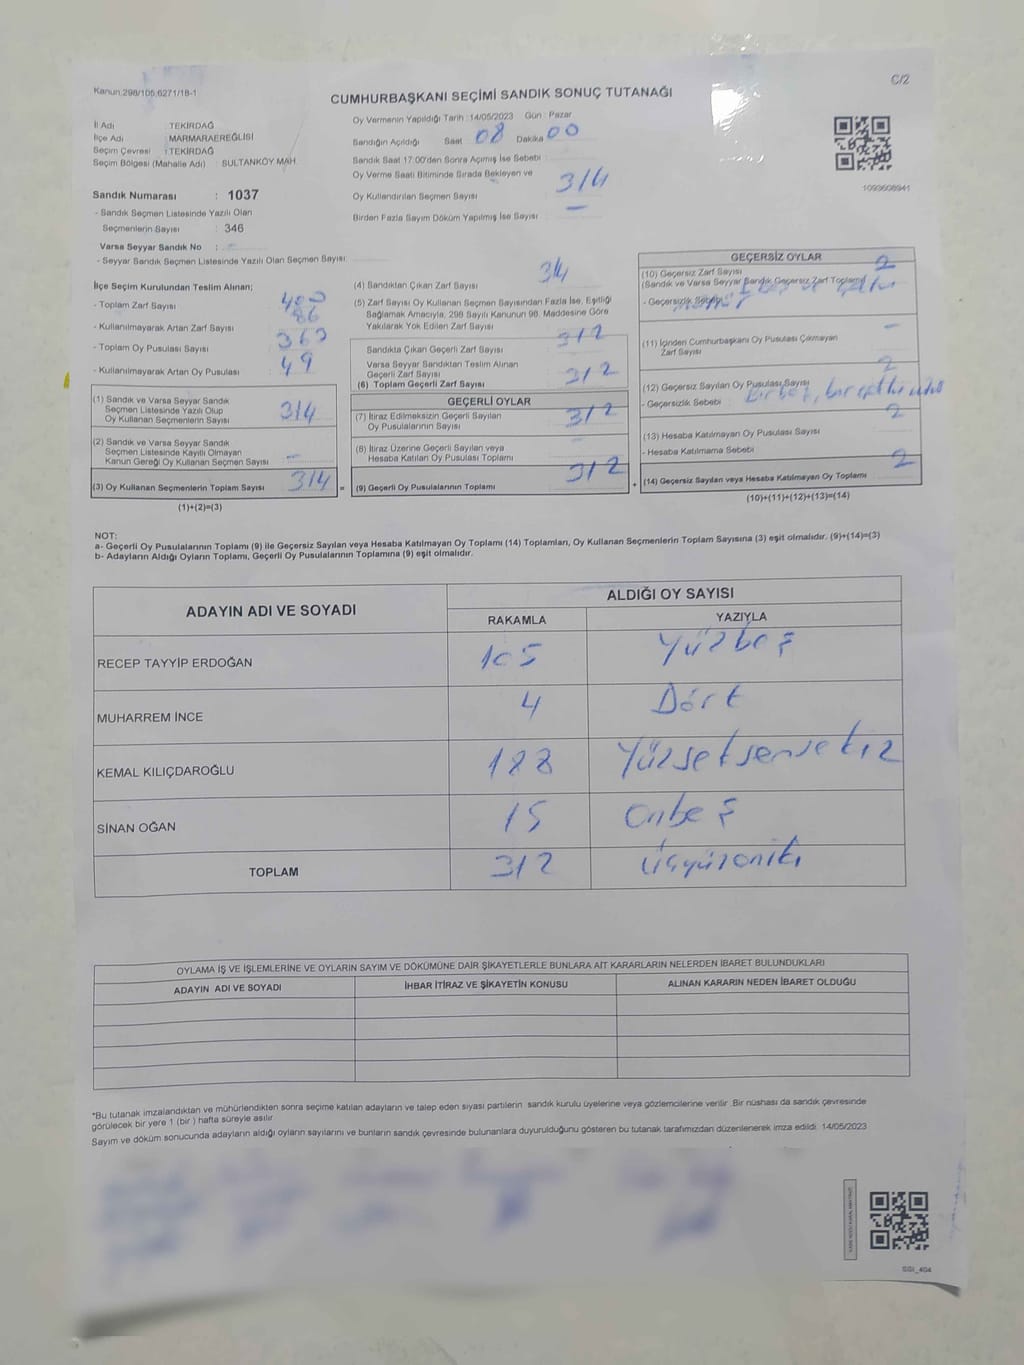 Kanun.298/105,6271/18-1
C/2
CUMHURBAŞKANI SEÇİMİ SANDIK SONUÇ TUTANAĞI
İl Adı : TEKİRDAĞ
İlçe Adı : MARMARAEREĞLİSİ
Seçim Çevresi : TEKİRDAĞ
Seçim Bölgesi (Mahalle Adı) : SULTANKÖY MAH.
Sandık Numarası : 1037
- Sandık Seçmen Listesinde Yazılı Olan
Seçmenlerin Sayısı : 346
Varsa Seyyar Sandık No : -
- Seyyar Sandık Seçmen Listesinde Yazılı Olan Seçmen Sayısı:
Oy Vermenin Yapıldığı Tarih :14/05/2023 Gün : Pazar
Sandığın Açıldığı Saat 08 Dakika 00
Sandık Saat 17:00'den Sonra Açılmış İse Sebebi
Oy Verme Saati Bitiminde Sırada Bekleyen ve
Oy Kullandırılan Seçmen Sayısı 314
Birden Fazla Sayım Döküm Yapılmış İse Sayısı -
1093608941
İlçe Seçim Kurulundan Teslim Alınan;
- Toplam Zarf Sayısı 400
- Kullanılmayarak Artan Zarf Sayısı 86
- Toplam Oy Pusulası Sayısı 363
- Kullanılmayarak Artan Oy Pusulası 49
(1) Sandık ve Varsa Seyyar Sandık
Seçmen Listesinde Yazılı Olup
Oy Kullanan Seçmenlerin Sayısı 314
(2) Sandık ve Varsa Seyyar Sandık
Seçmen Listesinde Kayıtlı Olmayan
Kanun Gereği Oy Kullanan Seçmen Sayısı -
(3) Oy Kullanan Seçmenlerin Toplam Sayısı 314
(1)+(2)=(3)
=
(4) Sandıktan Çıkan Zarf Sayısı 314
(5) Zarf Sayısı Oy Kullanan Seçmen Sayısından Fazla İse, Eşitliği
Sağlamak Amacıyla, 298 Sayılı Kanunun 98. Maddesine Göre
Yakılarak Yok Edilen Zarf Sayısı
Sandıkta Çıkan Geçerli Zarf Sayısı 312
Varsa Seyyar Sandıktan Teslim Alınan
Geçerli Zarf Sayısı
(6) Toplam Geçerli Zarf Sayısı 312
GEÇERLİ OYLAR
(7) İtiraz Edilmeksizin Geçerli Sayılan
Oy Pusulasının Sayısı 312
(8) İtiraz Üzerine Geçerli Sayılan veya
Hesaba Katılan Oy Pusulası Toplamı -
(9) Geçerli Oy Pusulalarının Toplamı 312
+
GEÇERSİZ OYLAR
(10) Geçersiz Zarf Sayısı 2
(Sandık ve Varsa Seyyar Sandık Geçersiz Zarf Toplamı)
- Geçersizlik Sebebi
(11) İçinden Cumhurbaşkanı Oy Pusulası Çıkmayan
Zarf Sayısı -
(12) Geçersiz Sayılan Oy Pusulası Sayısı 2
- Geçersizlik Sebebi :
(13) Hesaba Katılmayan Oy Pusulası Sayısı 2
- Hesaba Katılmama Sebebi
(14) Geçersiz Sayılan veya Hesaba Katılmayan Oy Toplamı 2
(10)+(11)+(12)+(13)=(14)
NOT:
a- Geçerli Oy Pusulalarının Toplamı (9) ile Geçersiz Sayılan veya Hesaba Katılmayan Oy Toplamı (14) Toplamları, Oy Kullanan Seçmenlerin Toplam Sayısına (3) eşit olmalıdır. (9)+(14)=(3)
b- Adayların Aldığı Oyların Toplamı, Geçerli Oy Pusulalarının Toplamına (9) eşit olmalıdır.
ADAYIN ADI VE SOYADI
ALDIĞI OY SAYISI
RAKAMLA YAZIYLA
RECEP TAYYİP ERDOĞAN 105 Yüzbeş
MUHARREM İNCE 4 Dört
KEMAL KILIÇDAROĞLU 188 Yüzseksensekiz
SİNAN OĞAN 15 Onbeş
TOPLAM 312 Üçyüzoniki
OYLAMA İŞ VE İŞLEMLERİNE VE OYLARIN SAYIM VE DÖKÜMÜNE DAİR ŞİKAYETLERLE BUNLARA AİT KARARLARIN NELERDEN İBARET BULUNDUKLARI
ADAYIN ADI VE SOYADI İHBAR İTİRAZ VE ŞİKAYETİN KONUSU ALINAN KARARIN NEDEN İBARET OLDUĞU
*Bu tutanak imzalandıktan ve mühürlendikten sonra seçime katılan adayların ve talep eden siyasi partilerin sandık kurulu üyelerine veya gözlemcilerine verilir. Bir nüshası da sandık çevresinde
görülecek bir yere 1 (bir ) hafta süreyle asılır.
Sayım ve döküm sonucunda adayların aldığı oyların sayılarını ve bunların sandık çevresinde bulunanlara duyurulduğunu gösteren bu tutanak tarafımızdan düzenlenerek imza edildi. 14/05/2023
SGI_404